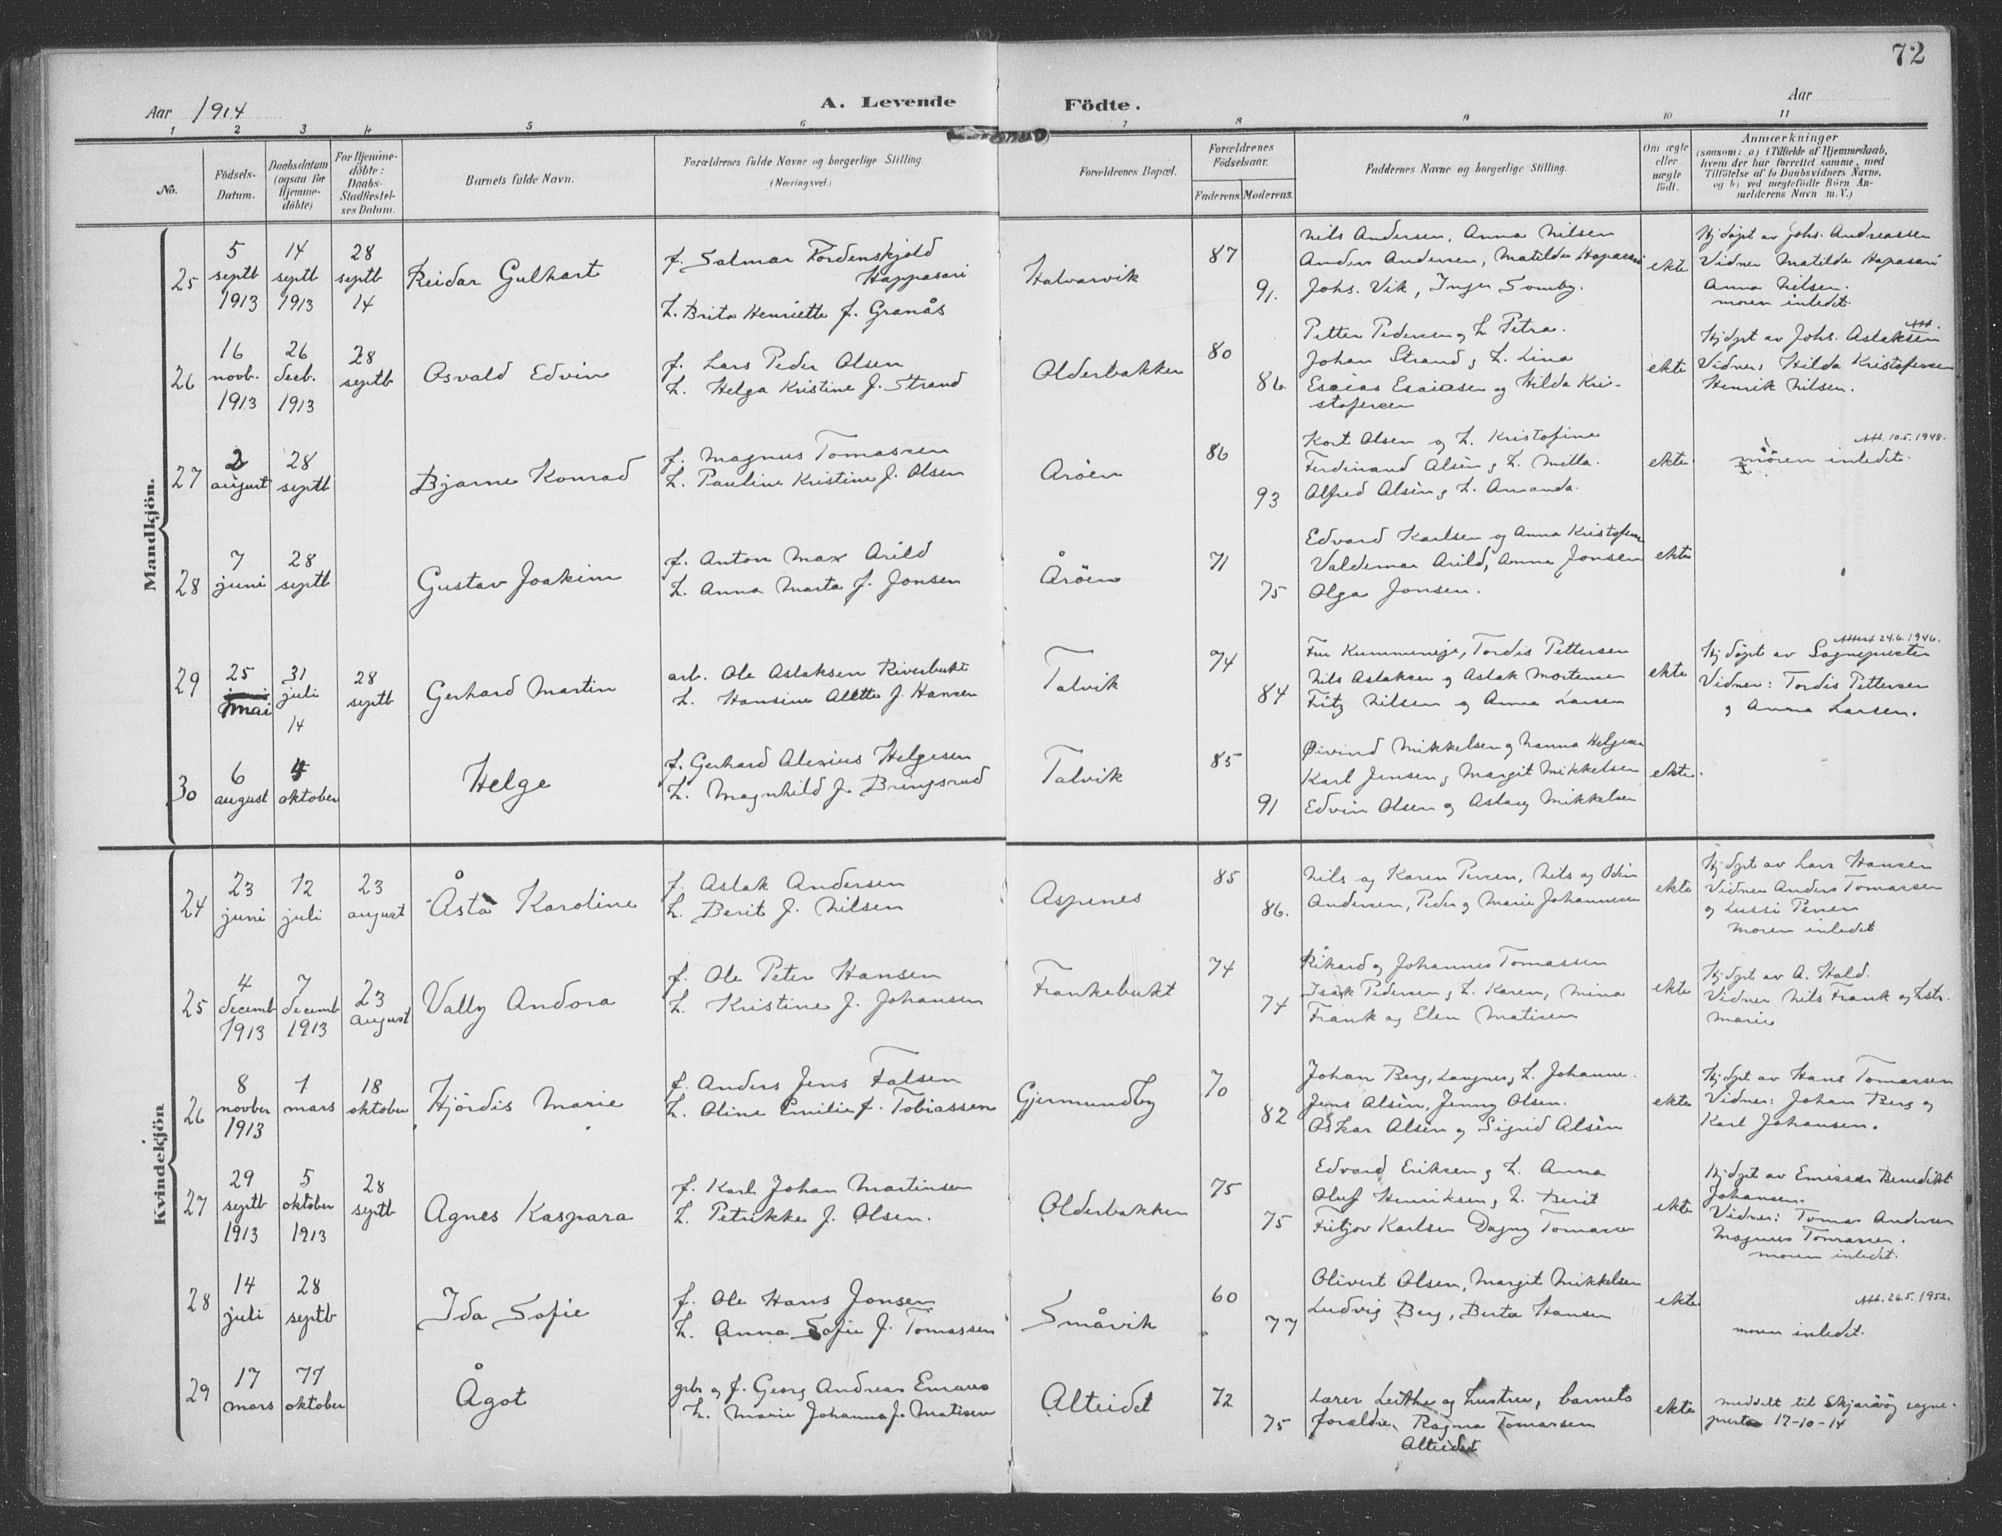 72
Aar 1914
A. Levende
Födte.
Aar
1 2 3 4 5 6 7 8 9 10 11
No.
Födsels-
Datum.
Daabsdatum
(ogsaa for
Hjemme-
döbte)
For Hjemme-
döbte:
Daabs-
Stadfæstel-
ses Datum.
Barnets fulde Navn.
Forældrenes fulde Navne og borgerlige Stilling
(Næringsvei.)
Forældrenes Bopæl.
Forældrenes
Födselsaar.
Faderens. Moderens.
Faddernes Navne og borgerlige Stilling.
Om ægte
eller
uægte
födt.
Anmærkninger
(saasom: a) i Tilfælde af Hjemmedaab,
hvem der har forrettet samme, med
Tilföielse af to Daabsvidners Navne,
og b) ved uægtefödte Börn An-
melderens Navn m. V.)
Mandkjön.
25
5
septb
1913
14
septb
1913
28
septb
14
Reidar Gulhart
f. Salmar Tordenskjold
Happasari
h. Brita Henriette f. Granås
Halvarvik
87
91.
Nils Andersen, Anna Nilsen
Anders Andersen, Matilde Hapasari
Johs. Vik, Inger Somby.
ekte
Hjdøpt av Johs. Andreassen
Vidner Matilde Hapasari
Anna Nilsen.
moren inledet.
26
16
novb.
1913
26
decb.
1913
28
septb
Osvald Edvin
f. Lars Peder Olsen
h. Helga Kristine f. Strand
Olderbakken
80
86.
Petter Pedersen og h. Petra.
Johan Strand og h. Lina
Esaias Esaiasen og Hilda Kri-
stofersen
ekte
Att.
Hjdøpt av Johs. Aslaksen
Vidner: Hilda Kristofersen
Henrik Nilsen.
27
2
august
28
septb
Bjarne Konrad
f. Magnus Tomassen
h. Pauline Kristine f. Olsen
Arøen
86
93
Kort Olsen og h. Kristofine
Ferdinand Alsèn og h. Milla.
Alfred Alsèn og h. Amanda.
ekte
Att. 10.5.1948.
moren inledet.
28
7
juni
28
septb
Gustav Joakim
f. Anton Max Arild
h. Anna Marta f. Jonsen
Årøen
71
75
Edvard Karlsen og Anna Kristofersen
Valdemar Arild, Anna Jonsen
Olga Jonsen.
ekte
29
25
mai
31
juli
14
28
septb
Gerhard Martin
arb. Ole Aslaksen Riverbukt
h. Hansine Alette f. Hansen
Talvik
74
84
Fru Kummeneje, Tordis Pettersen
Nils Aslaksen og Aslak Mortensen
Fritz Nilsen og Anna Larsen
ekte
Attest 24.6.1946.
Hjdøpt av Sognepresten
Vidner: Tordis Pettersen
og Anna Larsen.
30
6
august
4
oktober
Helge
f. Gerhard Alexius Helgesen
h. Magnhild f. Bringsrud
Talvik
85
91
Øivind Mikkelsen og Nanna Helgesen
Karl Jensen og Margit Mikkelsen
Edvin Olsen og Aslaug Mikkelsen
ekte
Kvindekjön
24
23
juni
12
juli
23
august
Åsta Karoline
f. Aslak Andersen
h. Berit f. Nilsen
Aspenes
85
86.
Nils og Karen Persen, Nils og Odin
Andersen, Peder og Marie Johannessen
ekte
Hjdøpt av Lars Hansen
Vidner Anders Tomassen
og Lussi Persen
moren inledet
25
4
decemb
1913
7
decemb
1913
23
august
Vally Andora
f. Ole Peter Hansen
h. Kristine f. Johansen
Frankebukt
74
74
Rikard og Johannes Tomassen
Isak Pedersen og h. Karen, Mina
Frank og Elen Matisen
ekte
Hjdøpt av A. Hald.
Vidner Nils Frank og hstr.
Marie
26
8
novber
1913
1
mars
18
oktober
Hjördis Marie
f. Anders Jens Falsen
h. Oline Emilie f. Tobiassen
Gjermundby
70
82
Johan Berg, Langnes, h. Johanne.
Jens Alsèn, Jenny Olsen.
Oskar Alsèn og Sigrid Alsèn
ekte
Hjdøpt av Hans Tomassen
Vidner: Johan Berg og
Karl Johansen.
27
29
septb
1913
5
oktober
1913
28
septb
Agnes Kaspara
f. Karl Johan Martinsen
h. Petrikke f. Olsen.
Olderbakken
75
75
Edvard Eriksen og h. Anna
Oluf Henriksen og h. Berit
Fritjov Karlsen Dagny Tomassen
ekte
Hjdøpt av Emissær Benedikt
Johansen.
Vidner: Tomas Andersen
Magnus Tomassen.
moren inledet.
28
14
juli
28
septb
Ida Sofie
f. Ole Hans Jonsen
h. Anna Sofie f. Tomassen
Småvik
60
77
Olivert Olsen, Margit Mikkelsen
Ludvig Berg, Berta Hansen
ekte
Att. 26.5.1952.
moren inledet.
29
17
mars
11
oktober
Ågot
grbr og f. Georg Andreas Emaus
h. Marie Johanna f. Matisen
Alteidet
72
75
Lærer Leithe og hustru, barnets
forældre, Ragna Tomassen
Alteidet
ekte
meddelt til Skjærvøy sogne-
prest 17-10-14